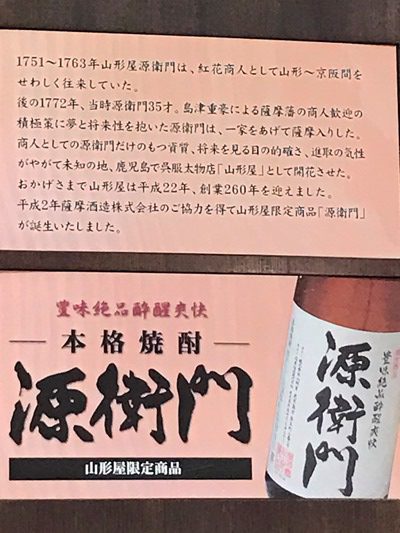 1751〜1763年山形屋源衛門は、紅花商人として山形〜京阪間を
せわしく往来していた。
後の1772年、当時源衛門35才。島津重豪による薩摩藩の商人歓迎の
積極策に夢と将来性を抱いた源衛門は、一家をあげて薩摩入りした。
商人としての源衛門だけのもつ資質、将来を見る目の的確さ、進取の気性
がやがて未知の地、鹿児島で呉服太物店「山形屋」として開花させた。
おかげさまで山形屋は平成22年、創業260年を迎えました。
平成2年薩摩酒造株式会社のご協力を得て山形屋限定商品「源衛門」
が誕生いたしました。
豊味絶品酔醒爽快
本格焼酎
源衛門
山形屋限定商品
豊味絶品酔醒爽快
源衛門